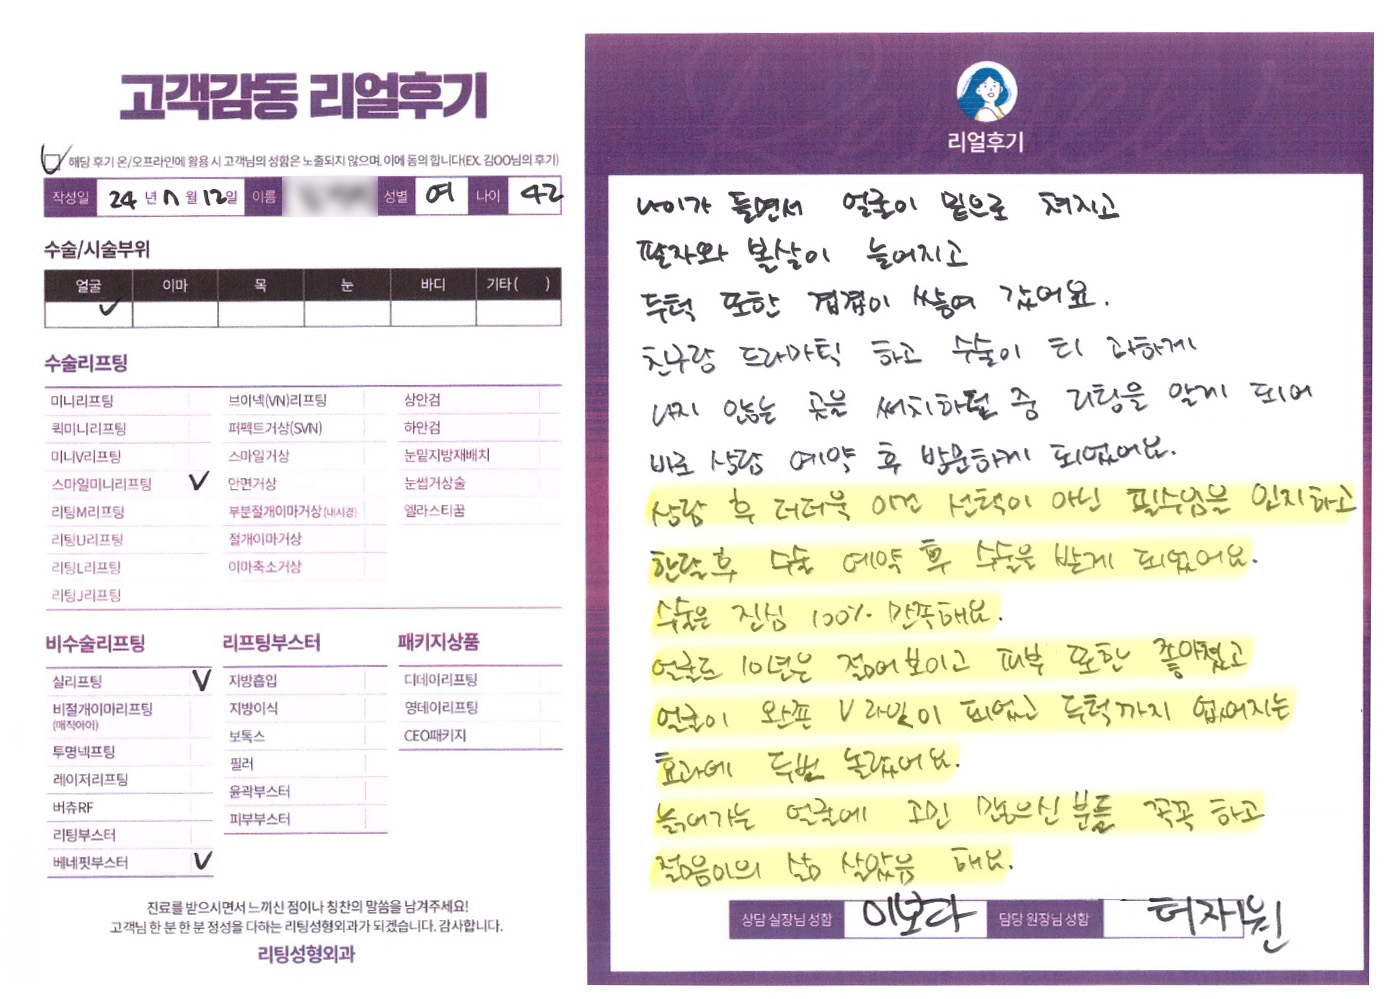 고객감동 리얼후기
해당 후기 온/오프라인에 활용 시 고객님의 성함은 노출되지 않으며, 이에 동의 합니다(EX. 김OO님의 후기)
작성일 24 년 7 월 12 일 이름 성별 여 나이 42
수술/시술부위
얼굴 이마 목 눈 바디 기타 ( )
수술리프팅
미니리프팅 브이넥(VN)리프팅 상안검
퀵미니리프팅 퍼펙트거상(SVN) 하안검
미니V리프팅 스마일거상 눈밑지방재배치
스마일미니리프팅 안면거상 눈썹거상술
리팅M리프팅 부분절개이마거상(내시경) 엘라스티꿈
리팅U리프팅 절개이마거상
리팅L리프팅 이마축소거상
리팅J리프팅
비수술리프팅 리프팅부스터 패키지상품
실리프팅 지방흡입 디데이리프팅
비절개이마리프팅 지방이식 영데이리프팅
(매직아이)
투명넥프팅 보톡스 CEO패키지
레이저리프팅 필러
버츄RF 윤곽부스터
리팅부스터 피부부스터
베네핏부스터
진료를 받으시면서 느끼신 점이나 칭찬의 말씀을 남겨주세요!
고객님 한 분 한 분 정성을 다하는 리팅성형외과가 되겠습니다. 감사합니다.
리팅성형외과
리얼후기
나이가 들면서 얼굴이 밑으로 쳐지고
팔자와 볼살이 늘어지고
두턱 또한 겹겹이 쌓여 갔어요.
친구랑 드라마틱 하고 수술이 티 과하게
나지 않는 곳을 써치하던 중 리팅을 알게 되어
바로 상담 예약 후 방문하게 되었어요.
상담 후 더더욱 이건 선택이 아닌 필수임을 인지하고
한달후 수술 예약 후 수술을 받게 되었어요.
수술은 진심 100% 만족해요.
얼굴도 10년은 젊어보이고 피부 또한 좋아졌고
얼굴이 완픈 V라인이 되었고 두턱까지 없어지는
효과에 두번 놀랐어요.
늙어가는 얼굴에 고민 많으신분들 꼭꼭 하고
젊음이의 삶 살았음 해요.
상담 실장님 성함 이보다 담당 원장님 성함